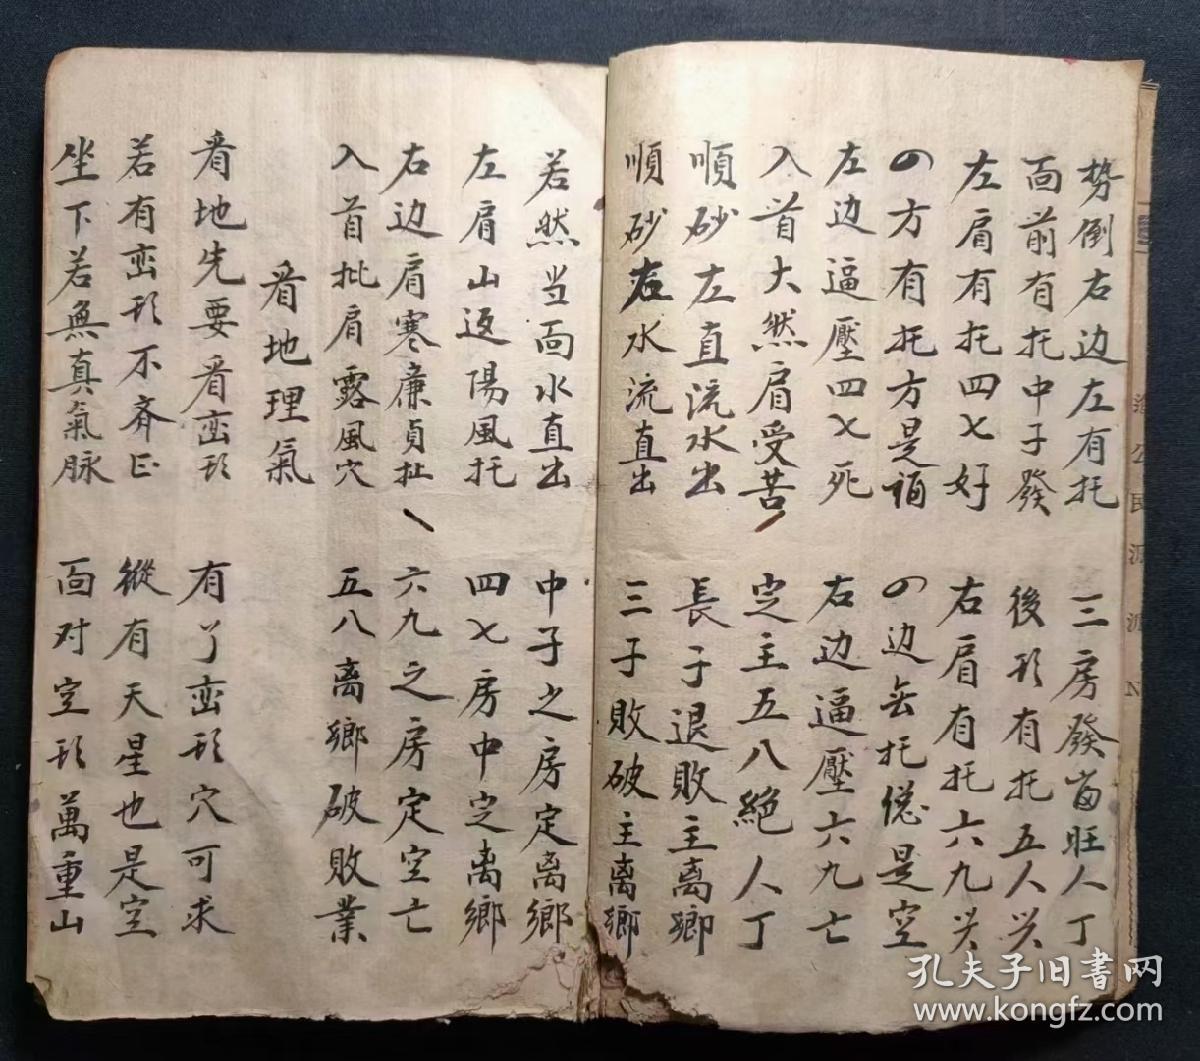 势倒右边左有托 三房發富旺人丁
面前有托中子發 後形有托五人兴
左肩有托四七好 右肩有托六九兴
の方有托方是福 の边無托総是空
左边逼壓四七死 右边逼壓六九亡
入首大然肩受苦 定主五八絕人丁
順砂左直流水出 長子退敗主离鄉
順砂右水流直出 三子敗破主离鄉
若然当面水直出 中子之房定离鄉
左肩山返陽風托 四七房中定离鄉
右边肩寒廉貞扯 六九之房定空亡
入首批肩露風穴 五八离鄉破敗業
看地理氣
看地先要看峦形 有了峦形穴可求
若有峦形不斉正 縱有天星也是空
坐下若無真氣脉 面对空形萬重山
孔夫子旧书网
www.kongfz.com